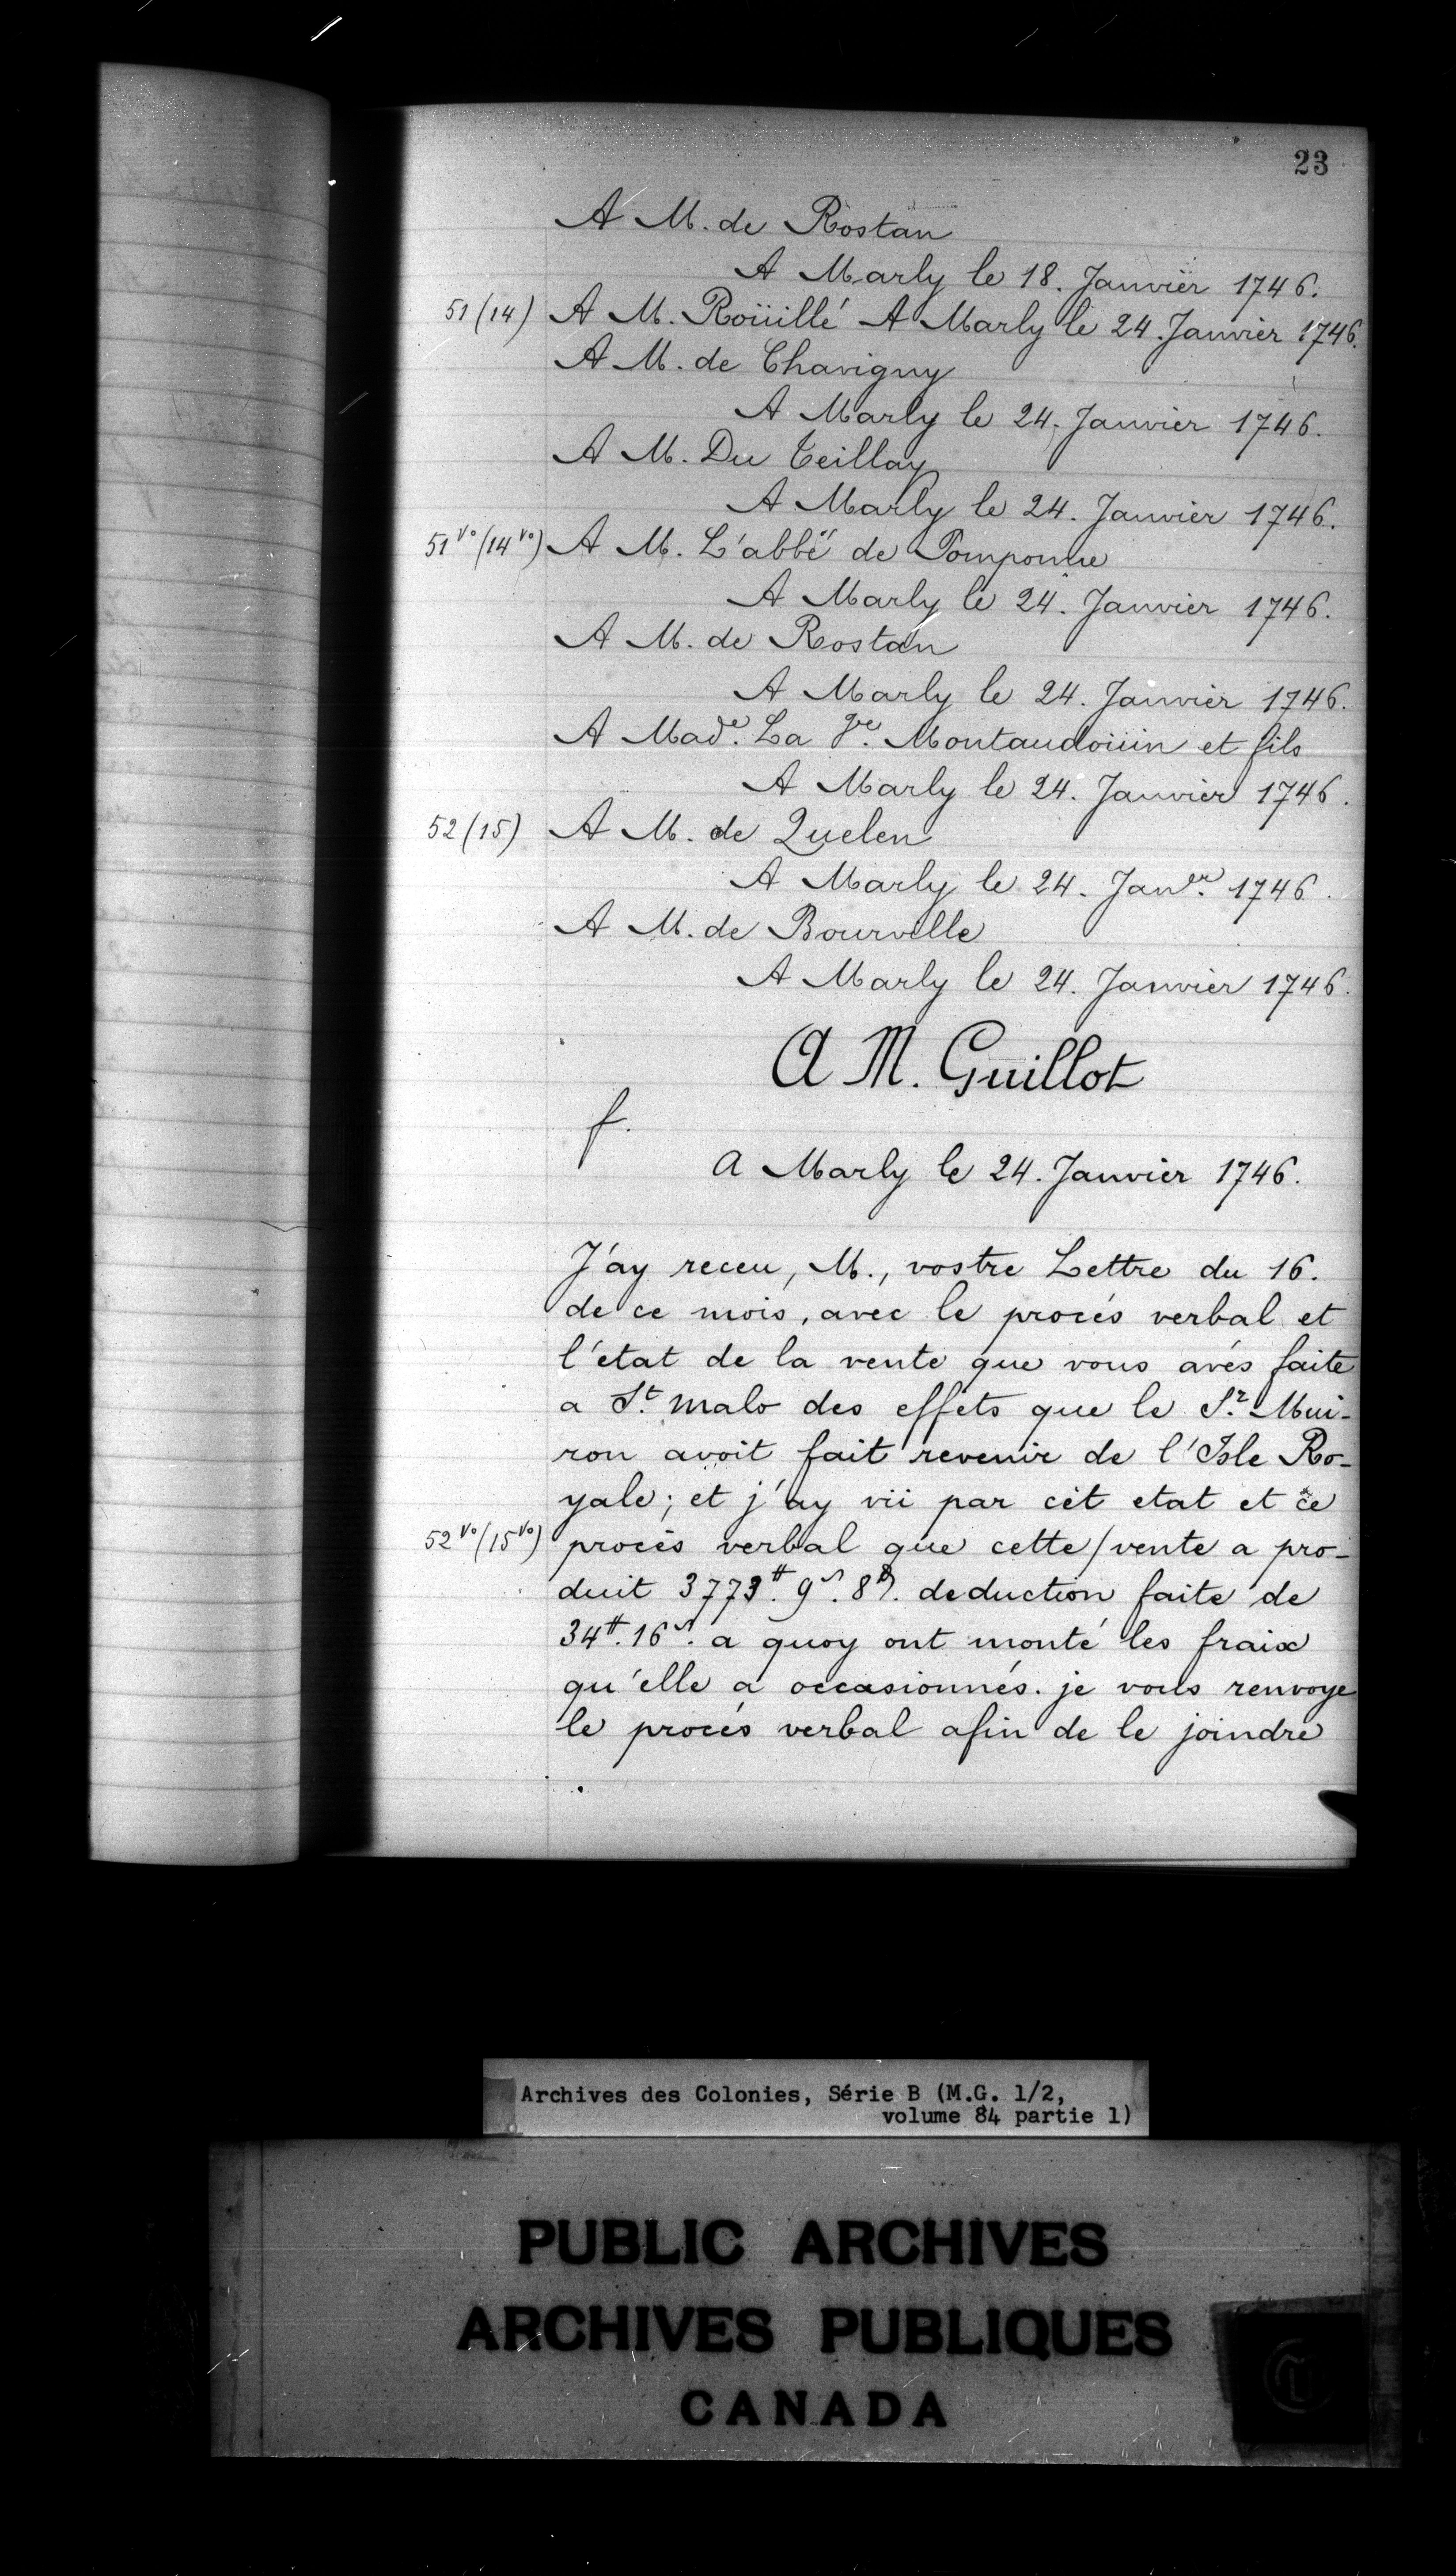 23
A M. de Rostan
A Marly le 18. Janvier 1746.
51 (14) A M. Roüillé A Marly le 24. Janvier 1746.
A M. de Chavigny
A Marly le 24. Janvier 1746.
A M. Du Teillay
A Marly le 24. Janvier 1746.
51 vo (14 vo) A M. L'abbé de Pomponne
A Marly le 24. Janvier 1746.
A M. de Rostan
A Marly le 24. Janvier 1746.
A Made. La Ve. Montaudoüin et fils
A Marly le 24. Janvier 1746.
52 (15) A M. de Quelen
A Marly le 24. Janver. 1746.
A M. de Bourville
A Marly le 24. Janvier 1746.
A M. Guillot
f.
a Marly le 24. Janvier 1746.
J'ay receu, M., vostre Lettre du 16.
de ce mois, avec le procés verbal et
l'etat de la vente que vous avés faite
a St. malo des effets que le Sr. Mui-
ron avoit fait revenir de l'Isle Ro-
yale; et j'ay vü par cèt etat et ce
52 vo (15 vo) procés verbal que cette / vente a pro-
duit 3773 #. 9 s. 8 d. deduction faite de
34 #. 16 s. a quoy ont monté les fraix
qu'elle a occasionnés. je vous renvoye
le procés verbal afin de le joindre
Archives des Colonies, Série B (M.G. 1/2,
volume 84 partie 1)
PUBLIC ARCHIVES
ARCHIVES PUBLIQUES
CANADA